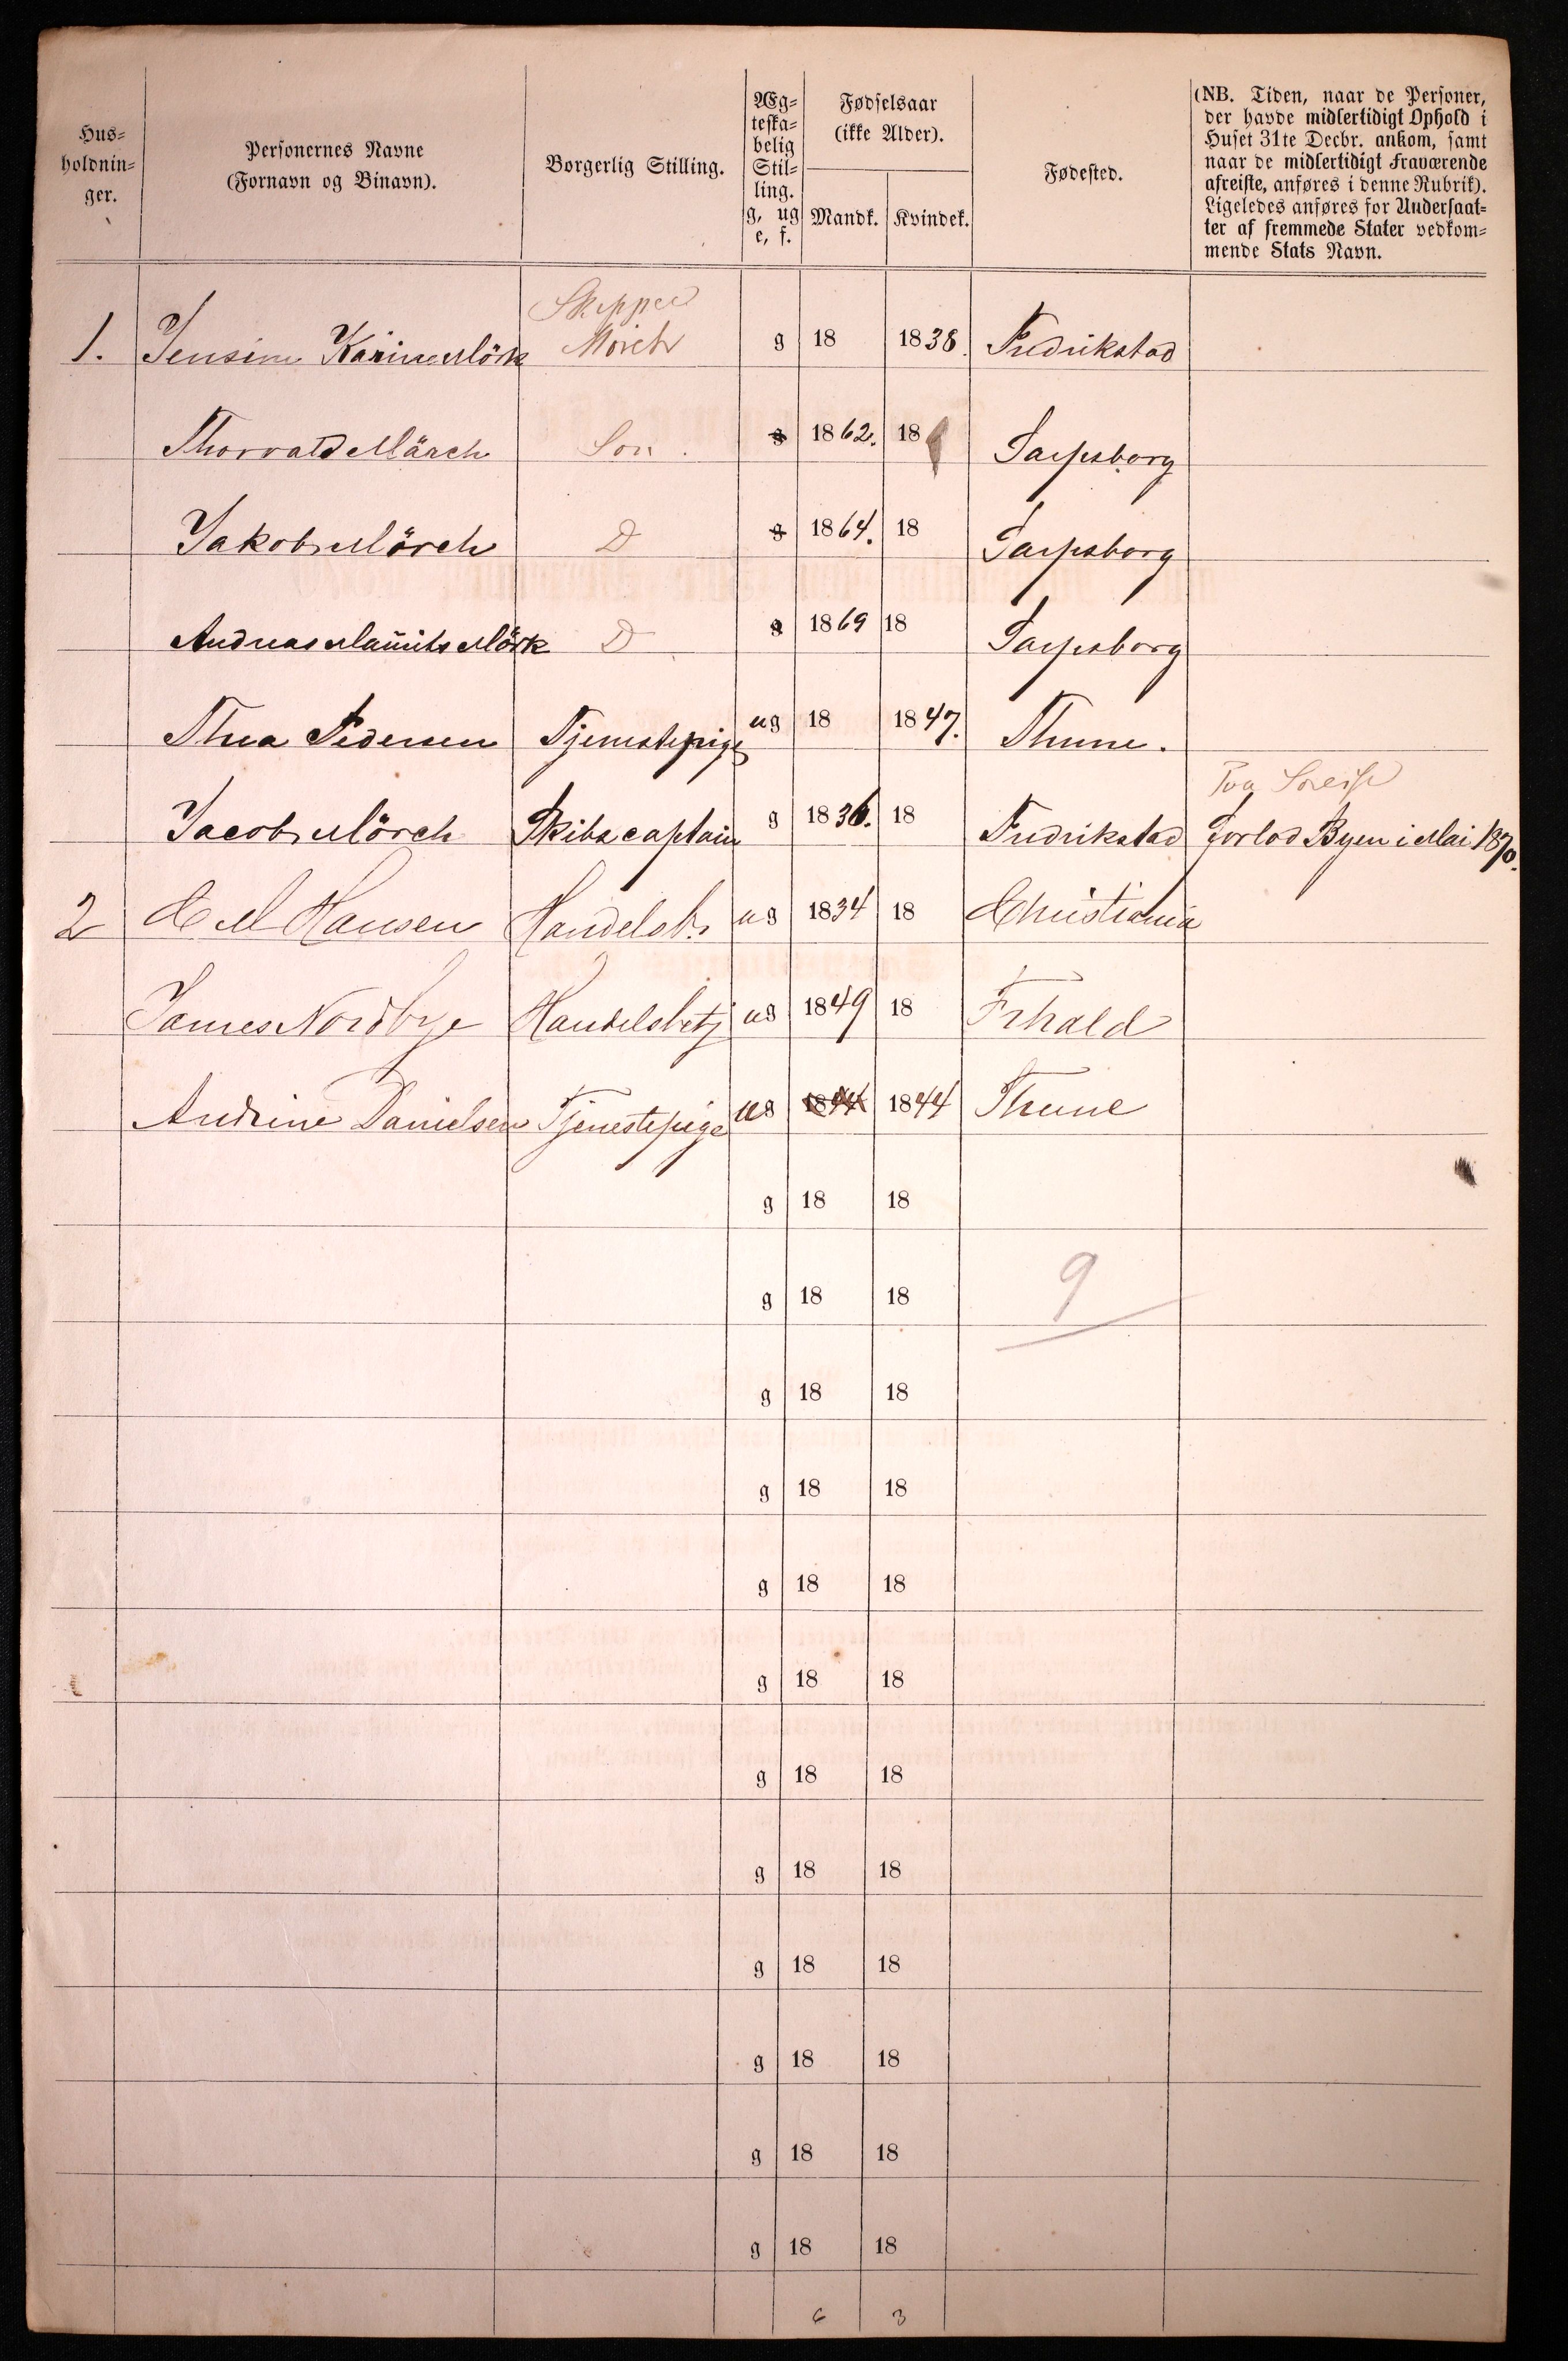 Hus-
holdnin-
ger.
Personernes Navne
(Fornavn og Binavn).
Borgerlig Stilling.
Æg-
teska-
belig
Stil-
ling.
g, ug
e, f.
Fødselsaar
(ikke Alder).
Mandk. Kvindek.
Fødested.
(NB. Tiden, naar de Personer,
der havde midlertidigt Ophold i
Huset 31te Decbr. ankom, samt
naar de midlertidigt Fraværende
afreiste, anføres i denne Rubrik).
Ligeledes anføres for Undersaat-
ter af fremmede Stater vedkom-
mende Stats Navn.
Skipper
1. Jensine Karine Mörk Mörch g 18 1838. Fredrikstad
Thorvald Märch Søn. g 1862. 18 Sarpsborg
Jakob Mörch D g 1864. 18 Sarpsborg
Andreas Mauritz Mörk D g 1869 18 Sarpsborg
Thea Pedersen Tjenestepige ug 18 1847. Thune.
Paa Søreise
Jacob Mörch Skibscaptain g 1836. 18 Fredrikstad Forlod Byen i Mai 1870.
2 C M Hansen Handelsb. ug 1834 18 Christiania
James Nordbye Handelsbetj ug 1849 18 Frhald
Andrine Danielsen Tjenestepige ug 1844 1844 Thune
g 18 18
g 18 18 9
g 18 18
g 18 18
g 18 18
g 18 18
g 18 18
g 18 18
g 18 18
g 18 18
g 18 18
g 18 18
6 3